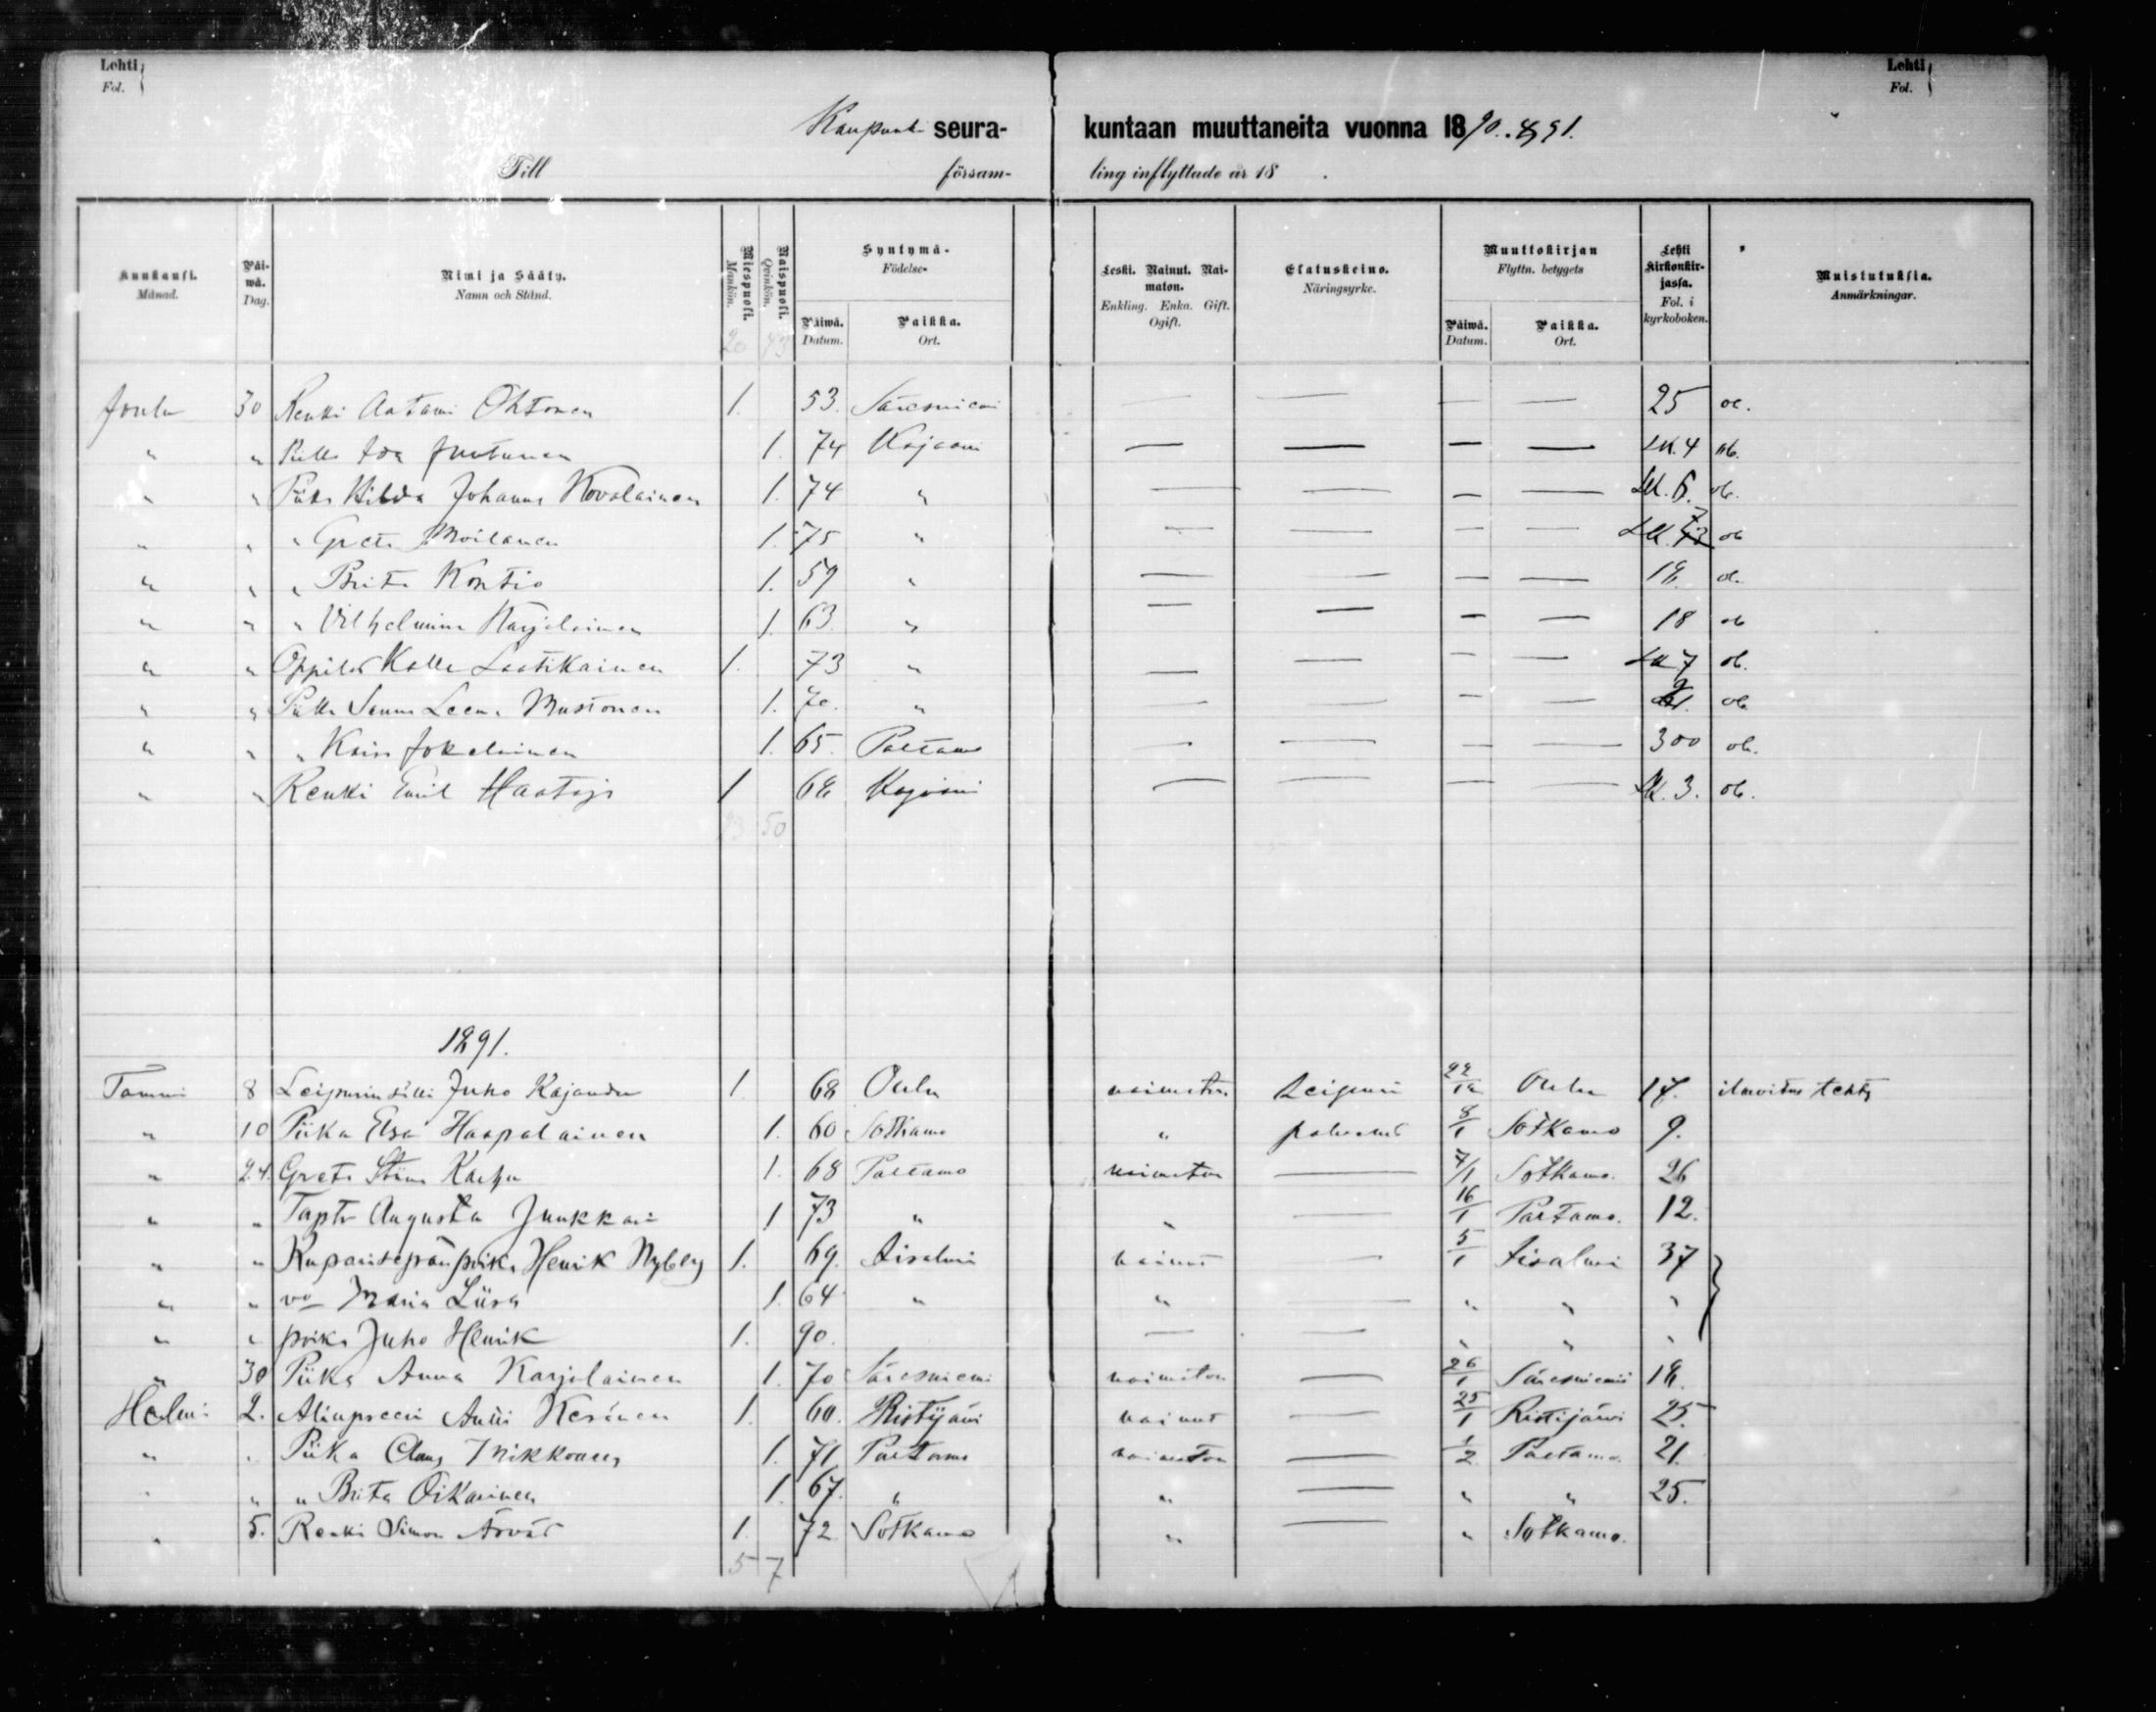 Lehti Fol.
Lehti Fol.
Kaupunki seura- kuntaan muuttaneita vuonna 1890. & 91.
Till försam- ling inflyttade år 18 .
Kuukausi. Månad.
Päiwä. Dag.
Nimi ja Sääty. Namn och Stånd.
Miespuoli. Mankön.
Naispuoli. Qvinkön.
Syntymä- Födelse-
Päiwä. Datum.
Paikka. Ort.
Leski. Nainut. Naimaton. Enkling. Enka. Gift. Ogift.
Elatuskeino. Näringsyrke.
Muuttokirjan Flyttn. betygets
Päiwä. Datum.
Paikka. Ort.
Lehti kirkonkirjassa. Fol. i kyrkoboken.
Muistutuksia. Anmärkningar.
Joulu 30 Renki Aatami Ohtonen 1. 53. Säresniemi — — — — 25
" " Ida Juntunen 1. 74 Kajaani — — — — LK. 4
" " Piika Hilda Johanna Kovalainen 1. 74 " — — — — LK. 6.
" " " Greta Moilanen 1. 75 " — — — — LK. 7
" " " Brita Kontio 1. 59 " — — — — 18.
" " " Vilhelmina Karjalainen 1. 63. " — — — — 18
" " Kalle Laatikainen 1. 73 " — — — — LK 7
" " Sanna Leena Mustonen 1. 70. " — — — —
" " " Kaisa Jokelainen 1. 65. Paltamo — — — — 300
" " Renki Emil Haataja 1 68 Kajaani — — — — LK. 3.
23 50
1891.
Tammi 8 Leipurinsälli Juho Kajander 1. 68 Oulu naimaton Leipuri 22/12 Oulu 17. ilmoitus tehty
" 10 Piika Elsa Haapalainen 1. 60 Sotkamo " 8/1 Sotkamo 9.
" 24. Greta Stiina Karhu 1. 68 Paltamo naimaton — 7/1 Sotkamo. 26
" " Augusta Junkkari 1 73 " " — 16/1 Paltamo. 12.
" " Kuparisepänpoika Henrik Nyberg 1. 69. Iisalmi nainut — 5/1 Iisalmi 37
" " vo Maria Liisa 1. 64 " " — " " "
" " poika Juho Henrik 1. 90. — — " " "
" 30 Piika Anna Karjalainen 1. 70 Säresniemi naimaton — 26/1 Säresniemi 18.
Helmi 2. Antti Keränen 1. 60. Ristijärvi nainut — 25/1 Ristijärvi 25.
" " Piika Mikkonen 1. 71 Paltamo naimaton — 1/2 Paltamo 21.
" " " Brita Oikarinen 1. 67. " " — " " 25.
" 5. Renki Simon 1. 72. Sotkamo " — " Sotkamo.
5 7